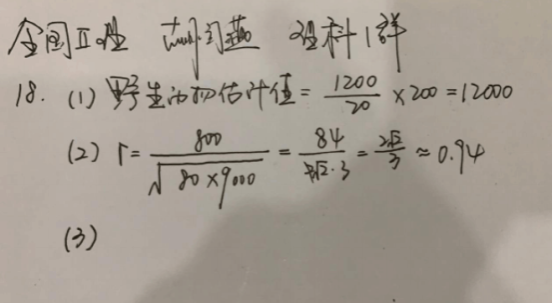 全国Ⅱ卷 理科1群
18. (1) 野生动物估计值 = 1200/20 × 200 = 12000
(2) r = 800/√(80×9000) = 84/(√2·3) = 2√2/3 ≈ 0.94
(3)